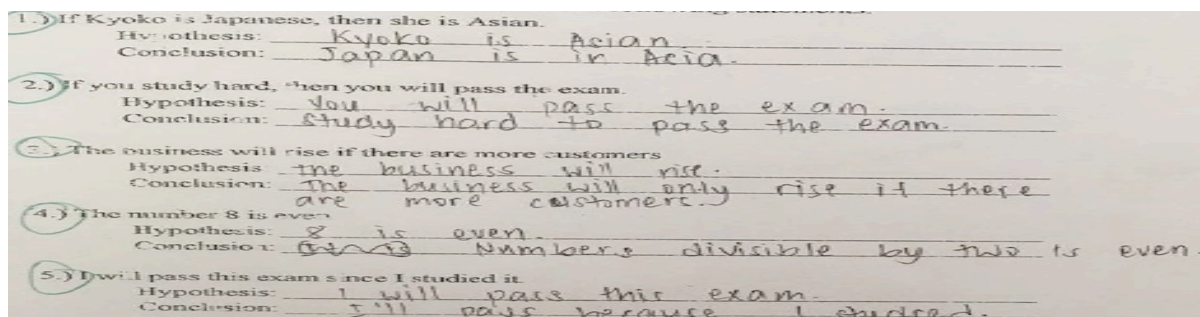 1.) If Kyoko is Japanese, then she is Asian.
Hypothesis: Kyoko is Asian
Conclusion: Japan is in Asia.
2.) If you study hard, then you will pass the exam.
Hypothesis: You will pass the exam.
Conclusion: Study hard to pass the exam.
3.) The business will rise if there are more customers
Hypothesis the business will rise.
Conclusion: The business will only rise if there
are more customers.
4.) The number 8 is even
Hypothesis: 8 is even.
Conclusion: Numbers divisible by two is even
5.) I will pass this exam since I studied it
Hypothesis: I will pass this exam.
Conclusion: I'll pass because I studied.